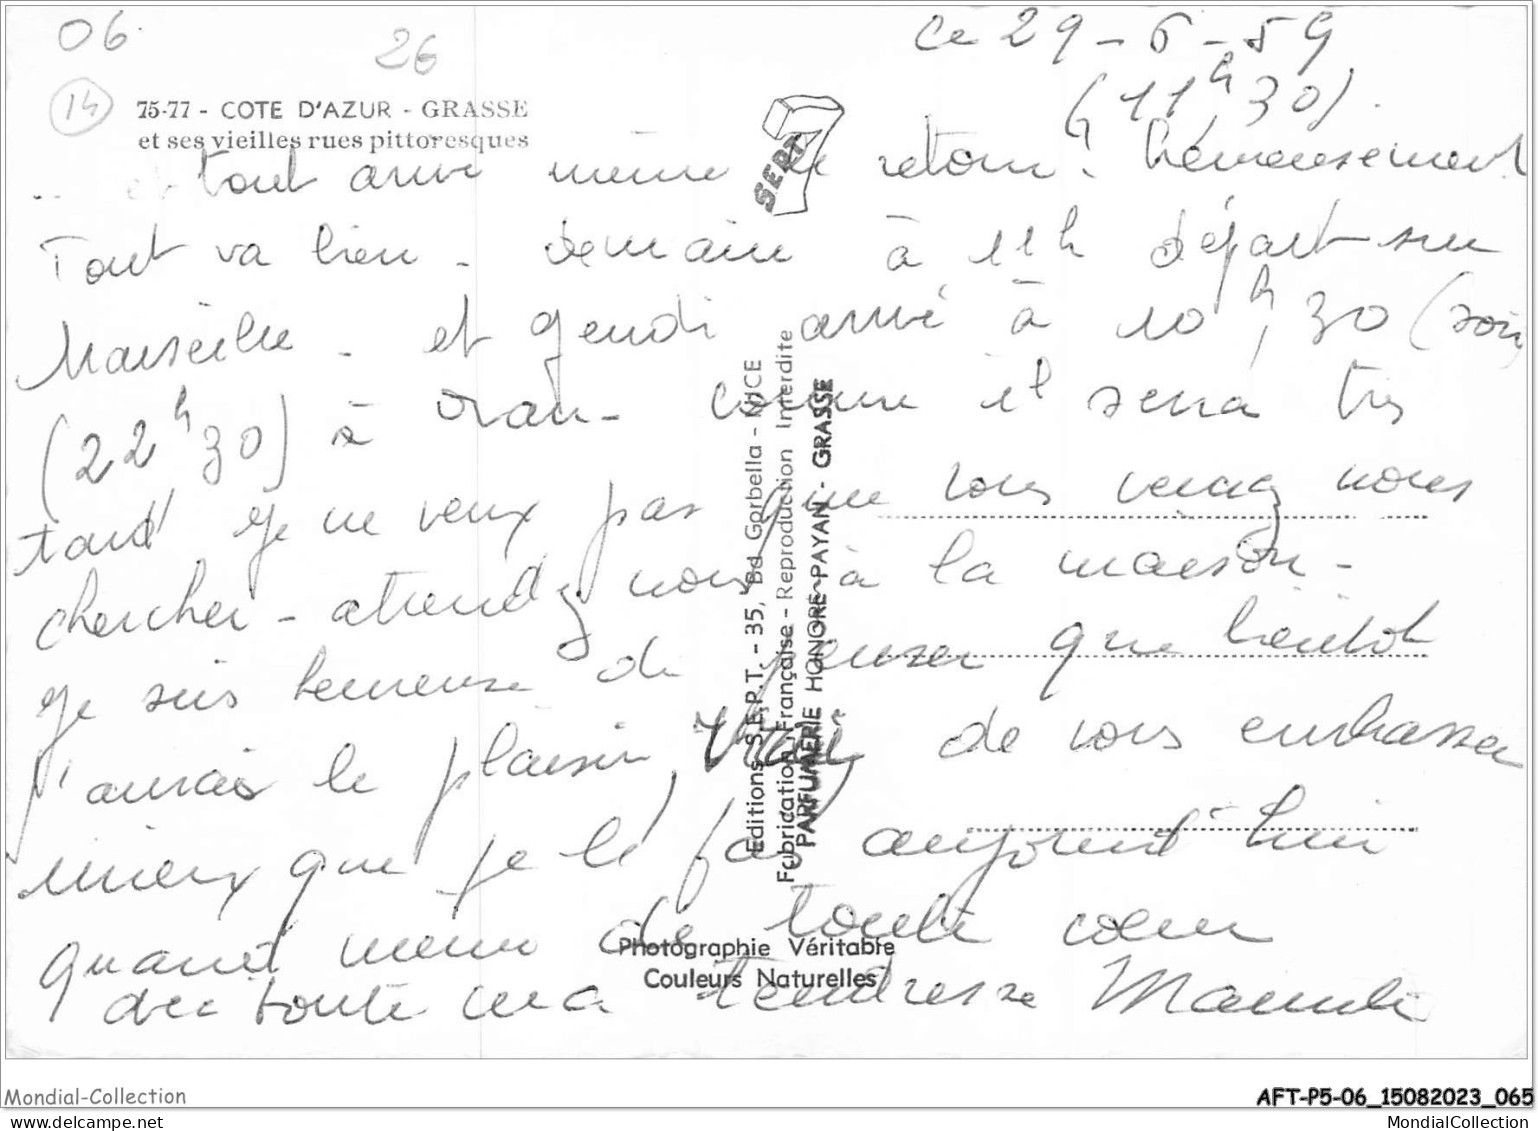 06
26
ce 29-6-59
(11h30).
14
75-77 - COTE D'AZUR - GRASSE
et ses vieilles rues pittoresques
SERT
.. et tout arrive même le retour! heureusement
Tout va bien - demain à 11h départ sur
Marseille - et jeudi arrivé à 10h,30 (soir)
(22h30) à Oran - comme il sera très
tard je ne veux pas que vous veniez nous
chercher - attendez nous à la maison -
Je suis heureuse de penser que bientôt
j'aurais le plaisir de vous embrasser
mieux que je le fais aujourd'hui
quand même de tout cœur
avec toute ma tendresse
Editions S.E.P.T. - 35, Bd Gorbella - NICE
Fabrication Française - Reproduction Interdite
PARFUMERIE HONORÉ-PAYAN - GRASSE
Photographie Véritable
Couleurs Naturelles
Mondial-Collection
AFT-P5-06_15082023_065
mondialcollection.delcampe.net
MondialCollection